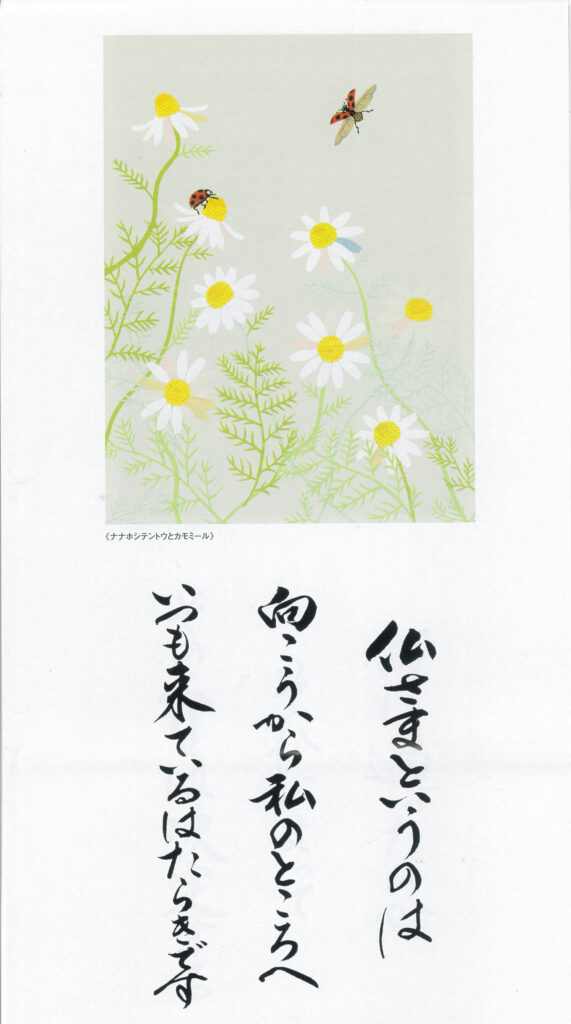 《ナナホシテントウとカモミール》
仏さまというのは
向こうから私のところへ
いつも来ているはたらきです